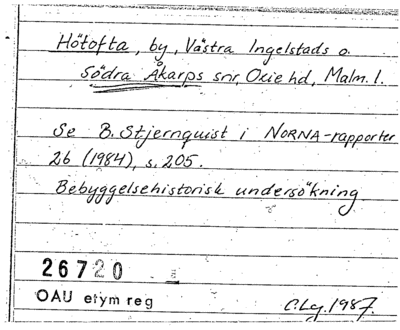 Hötofta, by, Västra Ingelstads o.
Södra Åkarps snr, Oxie hd, Malm. l.
Se B. Stjernquist i NORNA-rapporter
26 (1984), s. 205.
Bebyggelsehistorisk undersökning.
26720
OAU etym reg
C.Lg. 1987.